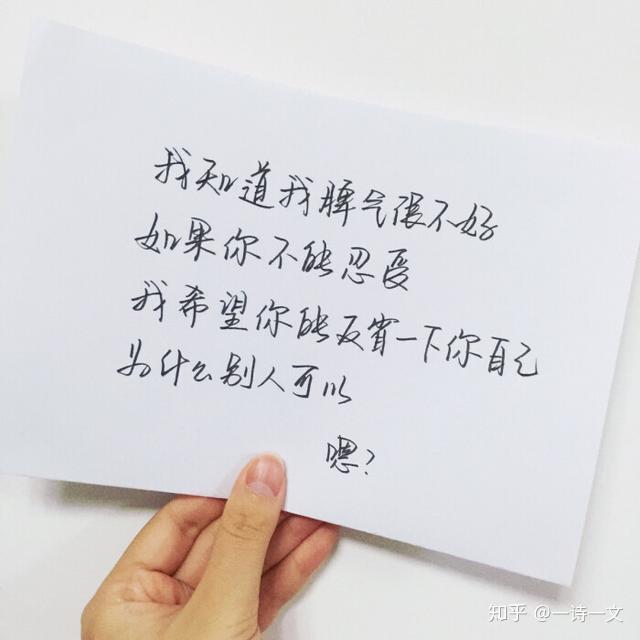 我知道我脾气很不好
如果你不能忍受
我希望你能反省一下你自己
为什么别人可以
嗯?
知乎 @一诗一文